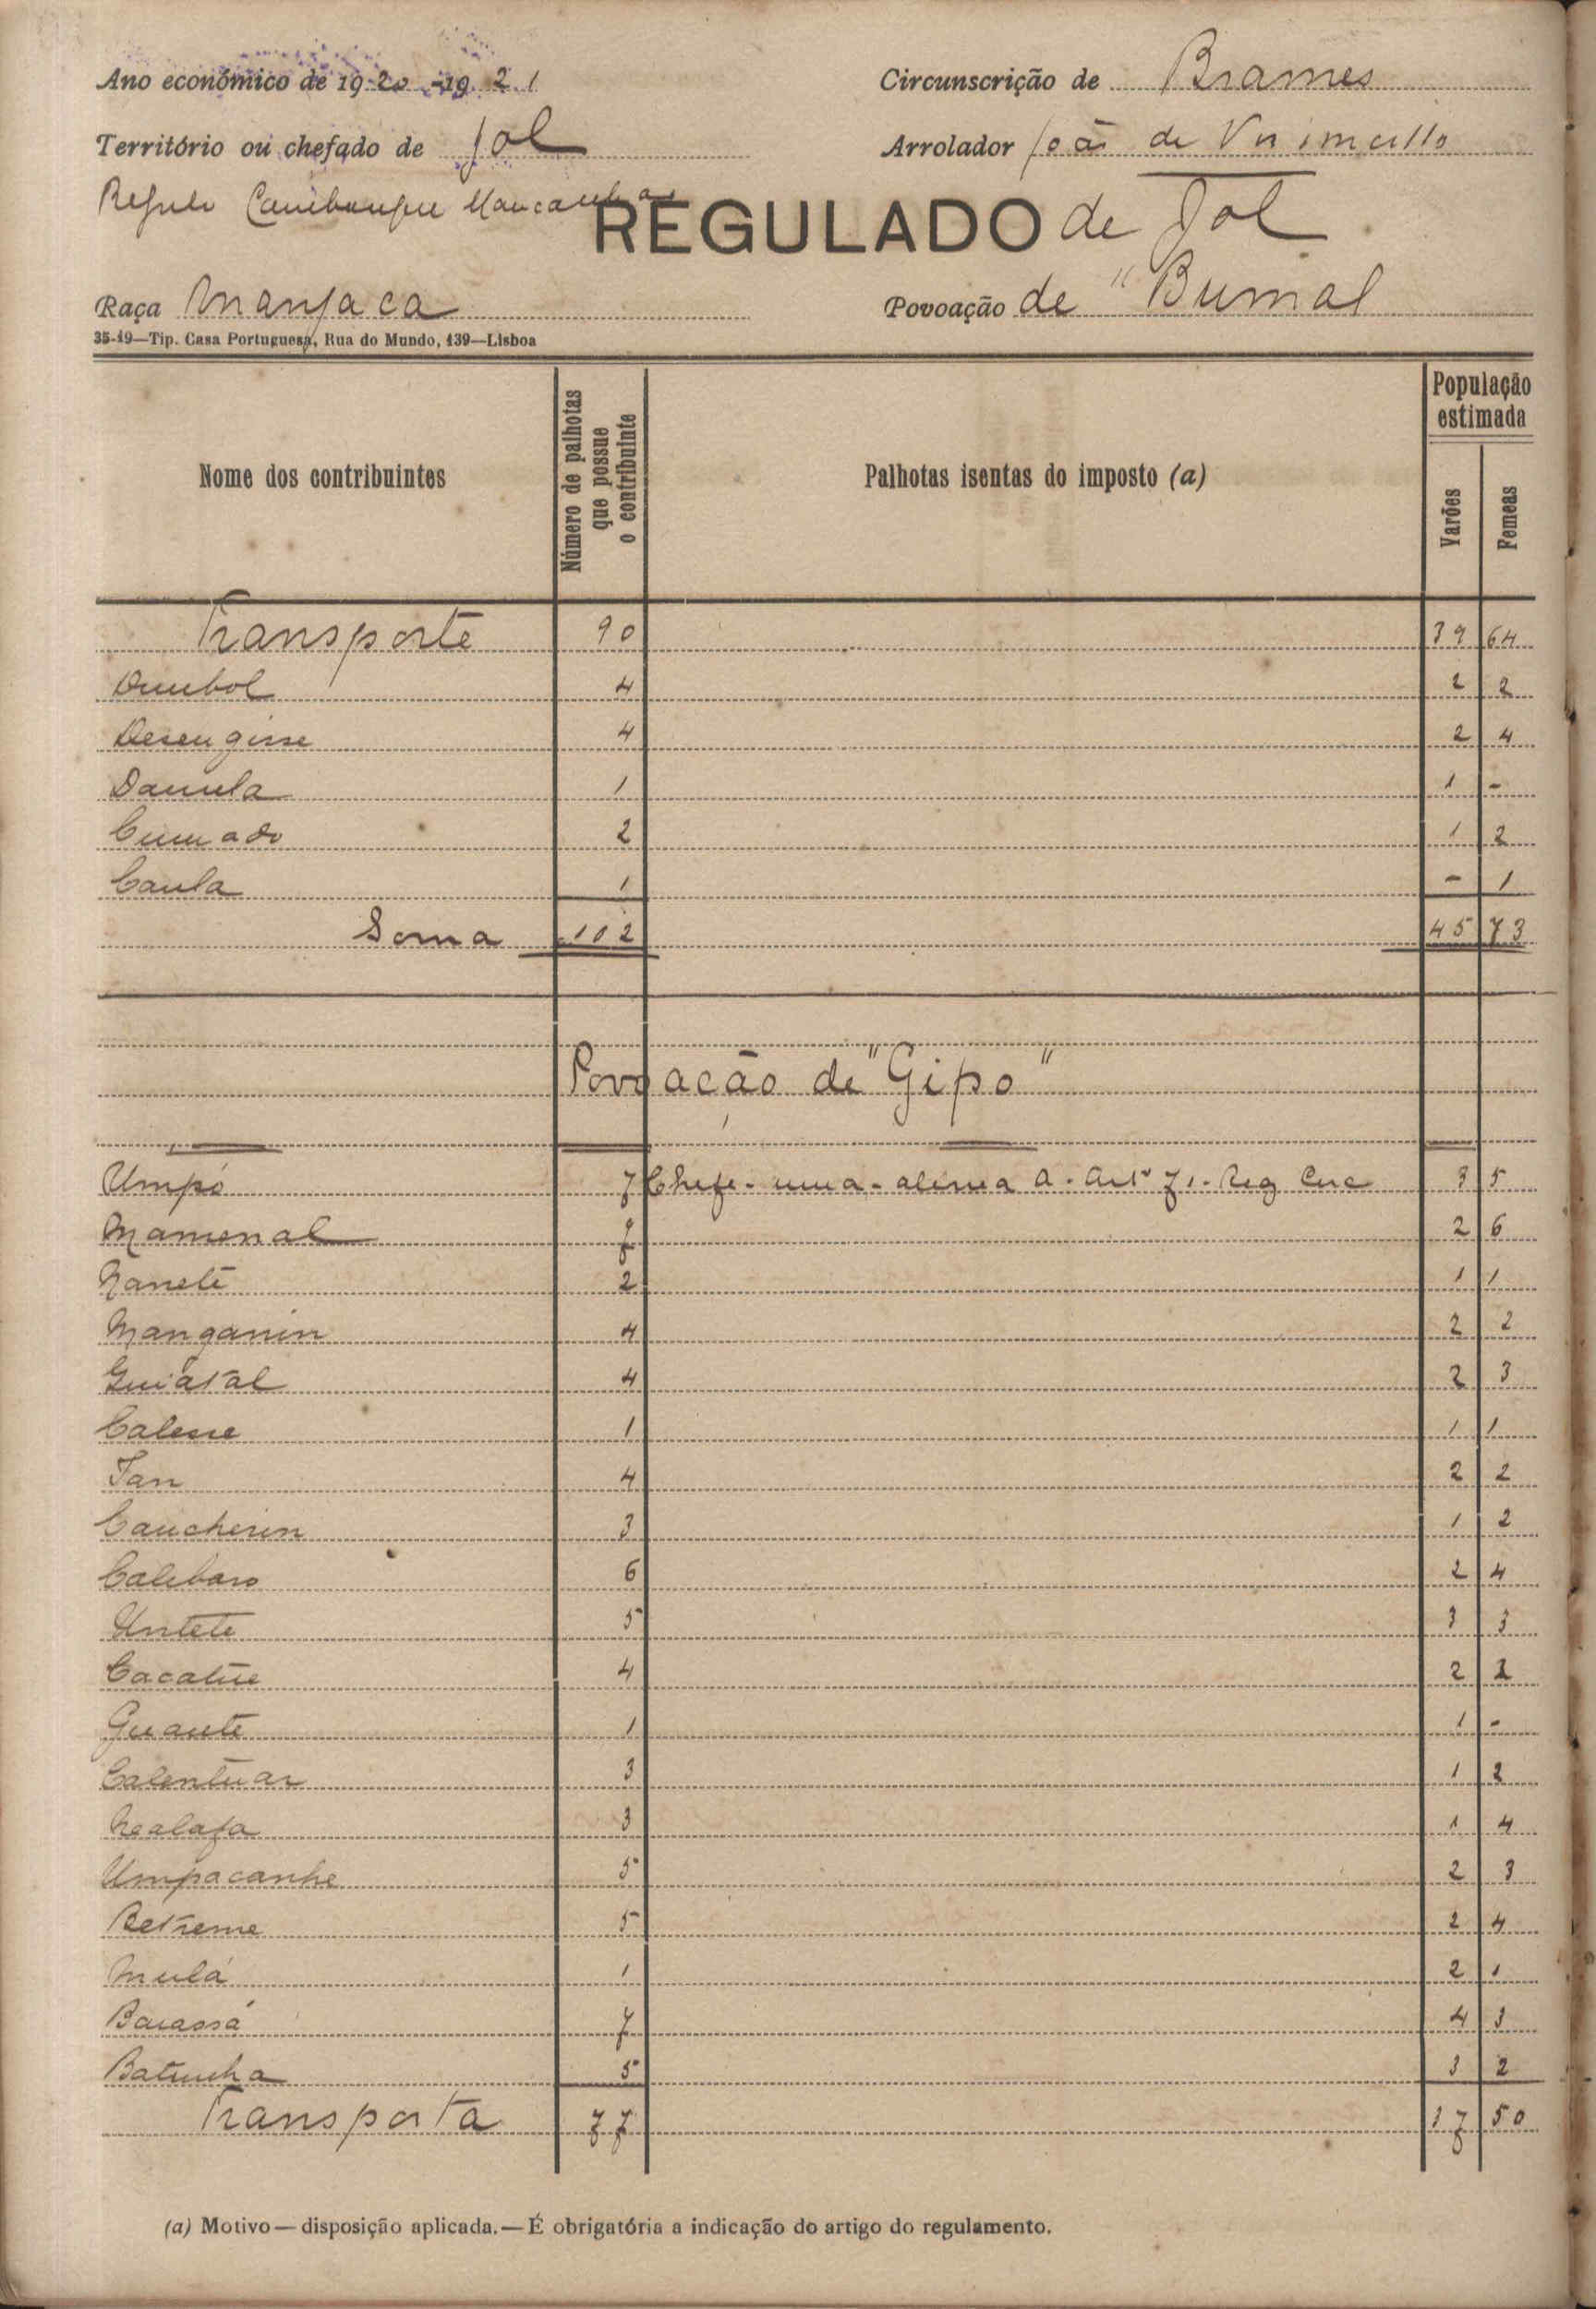 Ano económico de 1920-1921
Circunscrição de Brames
Território ou chefado de Jol
Arrolador João de
Regulo
REGULADO de Jol
Raça Manjaca
Povoação de "Bumal
35-19—Tip. Casa Portuguesa, Rua do Mundo, 139—Lisboa
Nome dos contribuintes
Número de palhotas que possue o contribuinte
Palhotas isentas do imposto (a)
População estimada
Varões
Femeas
Transporte 90 39 64
4 2 2
4 2 4
Damula 1 1 -
Cumado 2 1 2
Caula 1 - 1
Soma 102 45 73
Povoação de "Gipo"
Umpó 7 Chefe - uma - alinea a. Artº 71. Reg Circ 3 5
Mamenal 7 2 6
Naneté 2 1 1
Manganin 4 2 2
Guiátal 4 2 3
1 1 1
Jan 4 2 2
Caucherin 3 1 2
Calibaro 6 2 4
Untete 5 3 3
Cacatúe 4 2 2
Guante 1 1 -
Calentuar 3 1 2
3 1 4
Umpacanhe 5 2 3
Betreme 5 2 4
Mulá 1 2 1
Bacassá 7 4 3
Batunha 5 3 2
Transporta 77 37 50
(a) Motivo—disposição aplicada.—É obrigatória a indicação do artigo do regulamento.